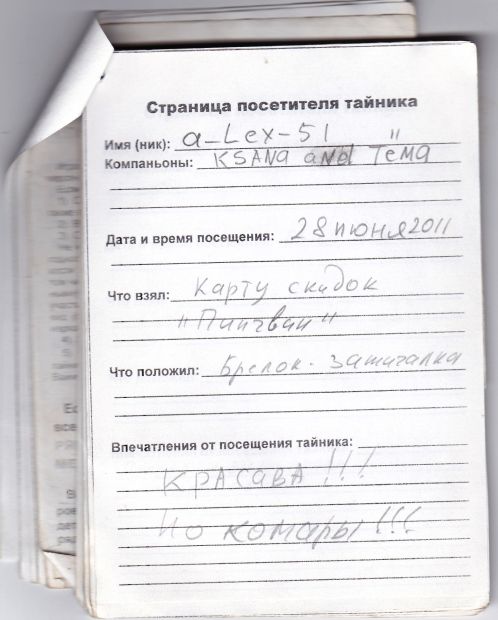 Страница посетителя тайника
Имя (ник): a_Lex-51
Компаньоны: KSANA and Тёма
Дата и время посещения: 28 июня 2011
Что взял: Карту скидок
"Пингвин"
Что положил: Брелок-зажигалка
Впечатления от посещения тайника:
КРАСАВА!!!
Но комары!!!